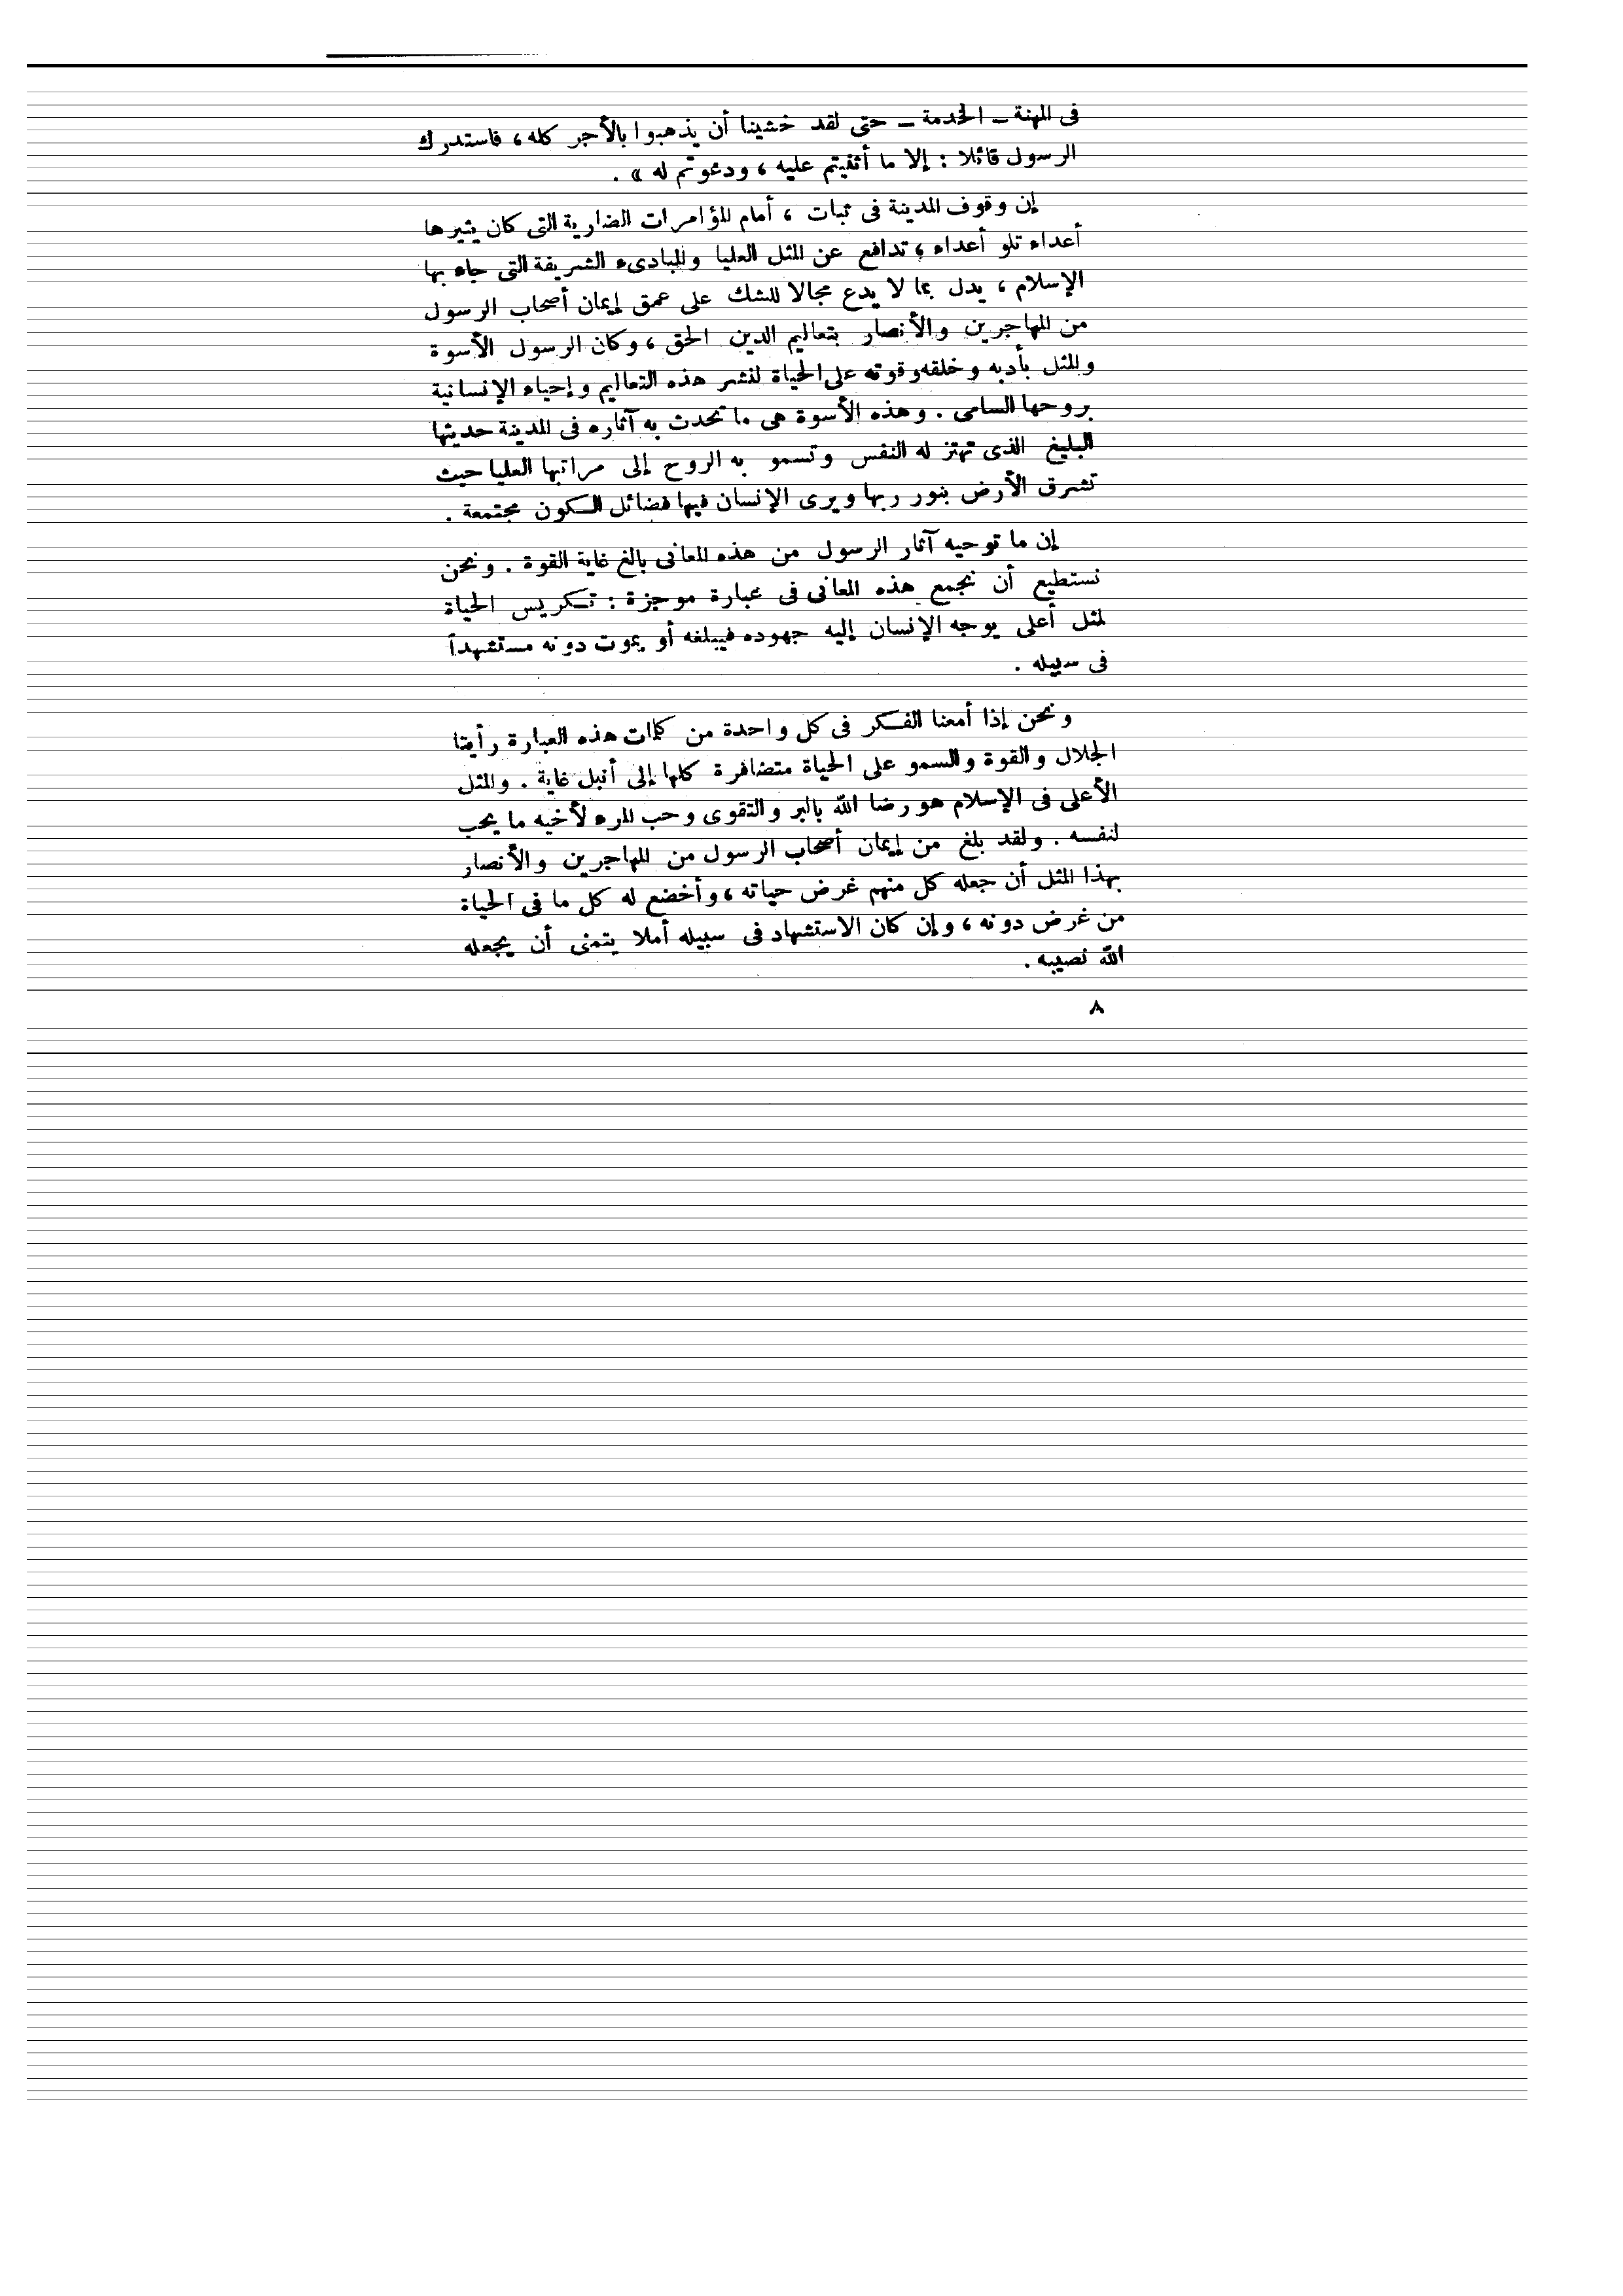 فى المهنة ــ الخدمة ــ حتى لقد خشينا أن يذهبوا بالأجر كله ، فاستدرك
الرسول قائلا : إلا ما أثنيتم عليه ، ودعوتم له » .
إن وقوف المدينة فى ثبات ، أمام المؤامرات الضارية التى كان يثيرها
أعداء تلو أعداء ، تدافع عن المثل العليا والمبادىء الشريفة التى جاء بها
الإسلام ، يدل بما لا يدع مجالا للشك على عمق إيمان أصحاب الرسول
من المهاجرين والأنصار بتعاليم الدين الحق ، وكان الرسول الأسوة
والمثل بأدبه وخلقه وقوته على الحياة لنشر هذه التعاليم وإحياء الإنسانية
بروحها السامى . وهذه الأسوة هى ما تحدث به آثاره فى المدينة حديثها
البليغ الذى تهتز له النفس وتسمو به الروح إلى مراتبها العليا حيث
تشرق الأرض بنور ربها ويرى الإنسان فيها فضائل الكون مجتمعة .
إن ما توحيه آثار الرسول من هذه المعانى بالغ غاية القوة . ونحن
نستطيع أن نجمع هذه المعانى فى عبارة موجزة : تكريس الحياة
لمثل أعلى يوجه الإنسان إليه جهوده فيبلغه أو يموت دونه مستشهداً
فى سبيله .
ونحن إذا أمعنا الفكر فى كل واحدة من كلمات هذه العبارة رأيتا
الجلال والقوة والسمو على الحياة متضافرة كلها إلى أنبل غاية . والمثل
الأعلى فى الإسلام هو رضا الله بالبر والتقوى وحب المرء لأخيه ما يحب
لنفسه . ولقد بلغ من إيمان أصحاب الرسول من المهاجرين والأنصار
بهذا المثل أن جعله كل منهم غرض حياته ، وأخضع له كل ما فى الحياة
من غرض دونه ، وإن كان الاستشهاد فى سبيله أملا يتمنى أن يجعله
الله نصيبه .
٨